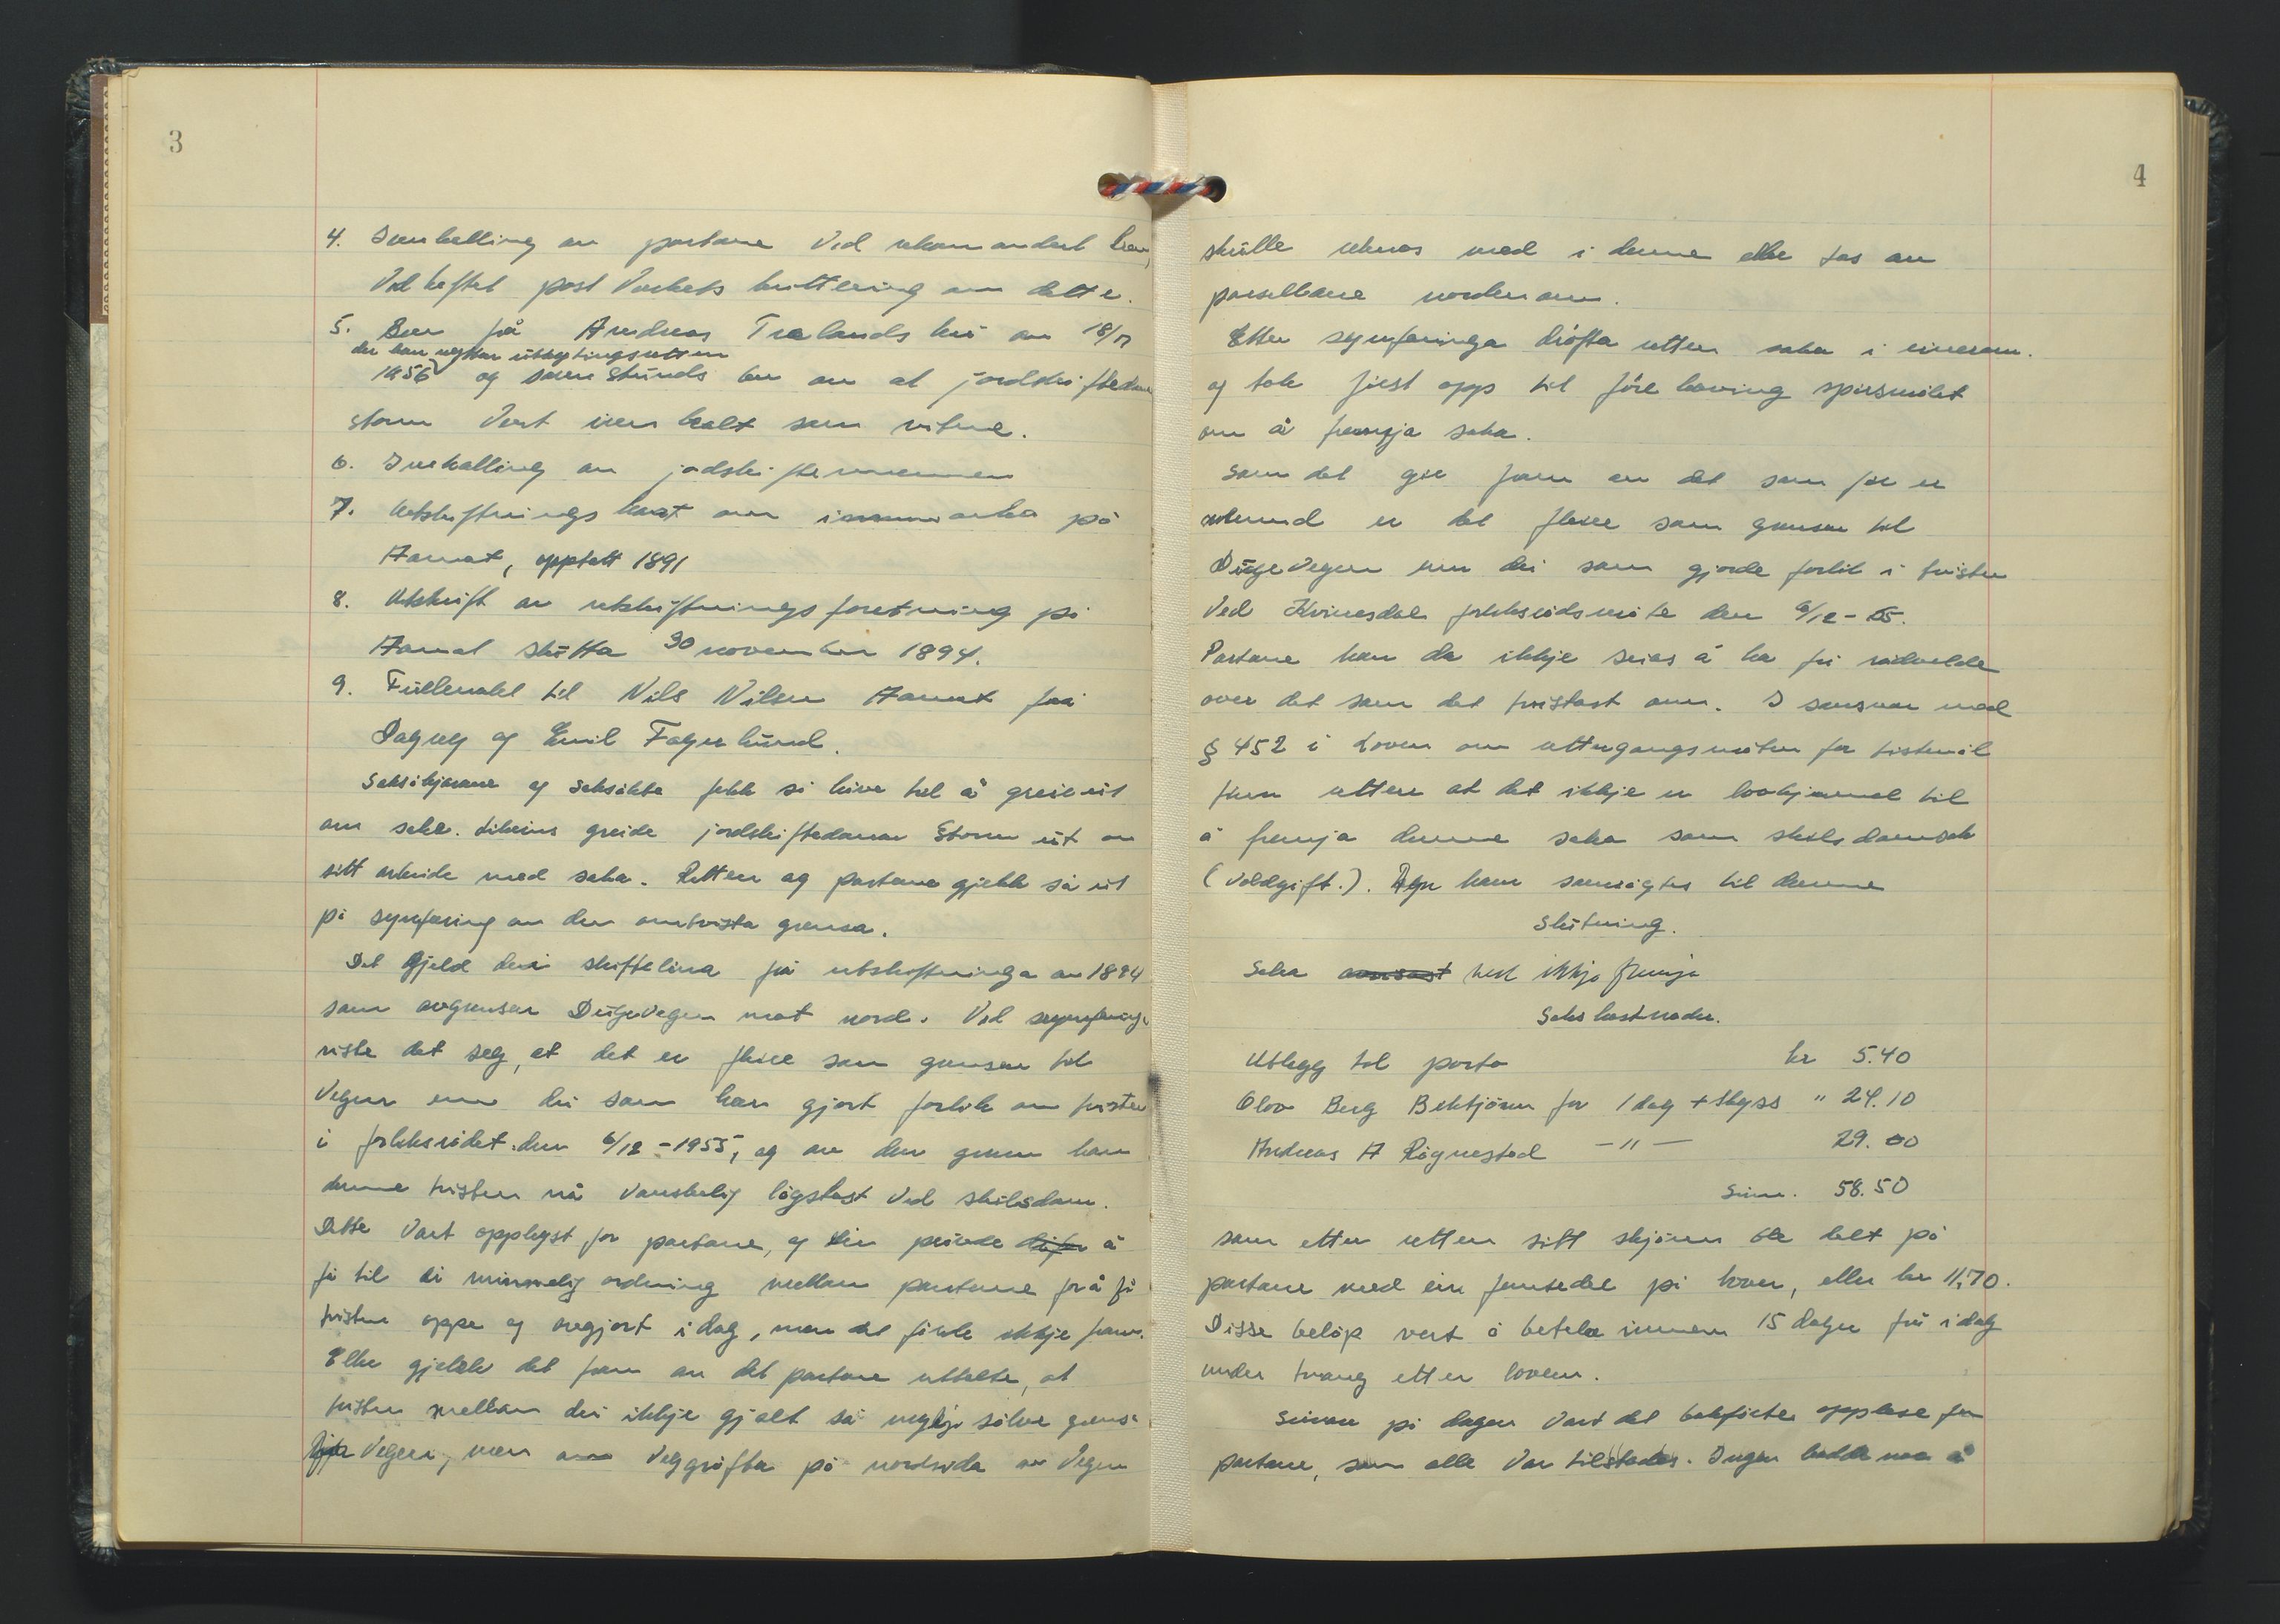 3
4. Innkalling av partane ved rekomandert brev,
Vedheftet postverkets kvittering om dette.
5. Brev frå Andreas Trælands krå av 18/
der han nyttar utbytingsretten
1956 og samstunds ber om at jordskiftedomar
Storm vert innkalt som vitne.
6. Innkalling av jordskiftemennene
7. Utskiftningskart over innmarka på
Aamot, opptatt 1891
8. Utskrift av utskiftningsforretning på
Aamot slutta 30 november 1894.
9. Fullmakt til Nils Nilsen Aamot frå
Dagny og Emil Fagerlund.
Saksökjarane og saksökte fekk så höve til å greie ut
om saka. Likeins greide jordskiftedomar Storm ut om
sitt arbeide med saka. Retten og partane gjekk så ut
på synfaring av den omtvista grensa.
Det gjeld den skiftelina frå utskiftninga av 1894
som avgrensar Dugevegen mot nord. Ved synfaringa
viste det seg, at det er fleire som grensar til
Vegen enn dei som har gjort forlik om tvisten
i forliksrådet den 6/12 - 1955, og av den grunn kan
denne tvisten nå vanskelig løysast ved skilsdom.
Dette vart opplyst for partane, og ein prøvde å
få til ei minnelig ordning mellom partane for å få
tvisten oppe og avgjort i dag, men det førde ikkje fram.
Elles gjekk det fram av det partane uttalte, at
tvisten mellom dei ikkje gjalt så mykje sölve grensa
Vegen, men veggröfta på nordsida av Vegen
4
skulle reknas med i denne eller tas av
parsellane nordenom.
Etter synfaringa dröfta retten saka i einerom.
og tok först opp til förehaving spursmålet
om å fremja saka.
Som det går fram av det som för er
nemnd er det fleire som grensar til
Dugevegen enn dei som gjorde forlik i tvisten
Ved Kvinesdal forliksrådsmöte den 6/12 - 55.
Partane kan da ikkje seias å ha fri rådvelde
over det som det tvistast om. I samsvar med
§ 452 i Loven om rettergangsmåten for tvistemål
finn retten at det ikkje er lovhjemmel til
å fremja denne saka som skilsdomssak
(Voldgift.). Ein kom samrøystes til denne
Slutning.
Saka avvisast vert ikkje fremja
Sakskostnader.
Utlegg til porto kr 5.40
Olav Berg Bekkjörn for 1 dag + skyss " 24.10
Andreas A Rögnestad - " - 29.00
Sum. 58.50
som etter retten sitt skjönn ble delt på
partane med ein femtedel på hver, eller kr 11,70.
Disse belöp vert å betala innen 15 dager frå i dag
under tvang etter loven.
Seinare på dagen vart det bokförte opplese for
partane, som alle var tilstades. Ingen hadde noe å